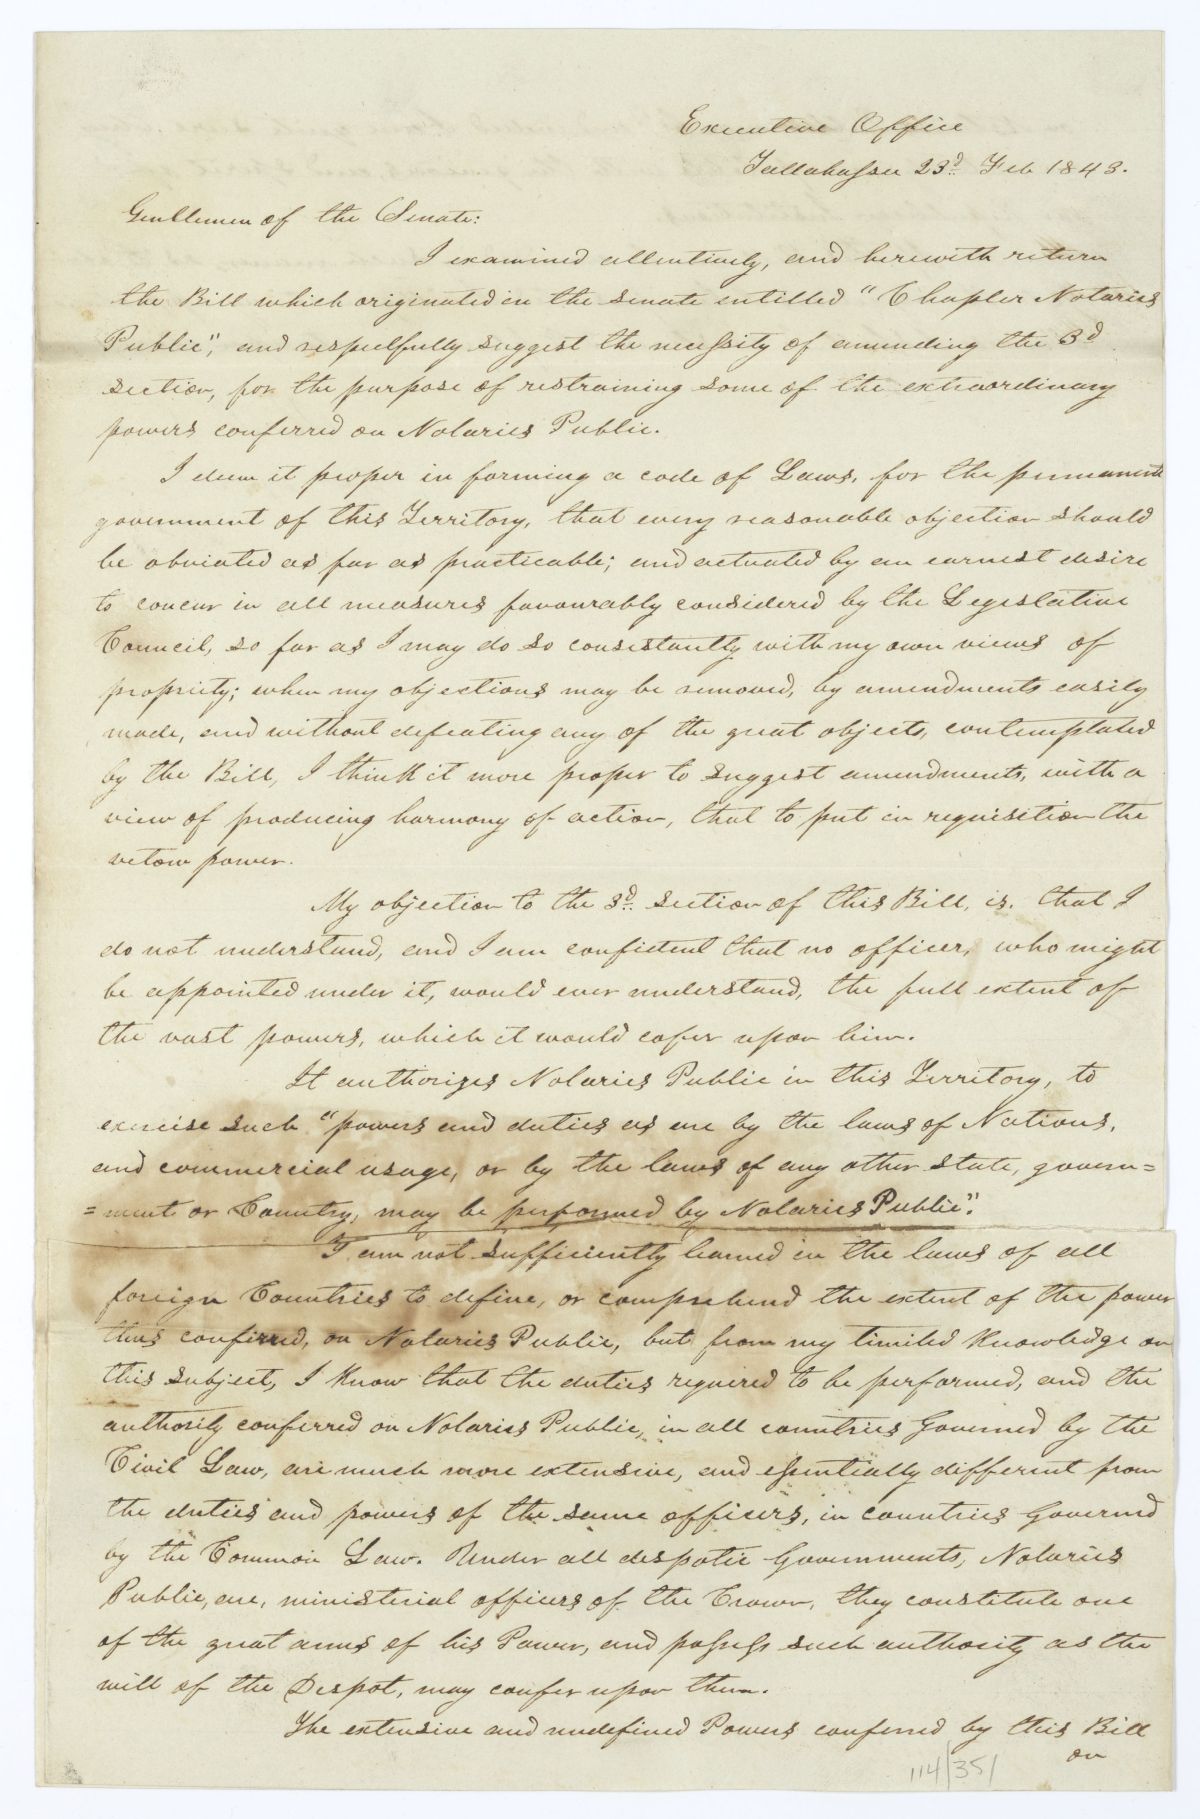 Executive Office
Tallahassee 23d. Feb 1843.
Gentlemen of the Senate:
I examined attentively, and herewith return
the Bill which originated in the Senate entitled "Chapter Notaries
Public", and respectfully suggest the necessity of amending the 3d
section, for the purpose of restraining some of the extraordinary
powers conferred on Notaries Public.
I deem it proper in forming a code of Laws, for the permanent
government of this Territory, that every reasonable objection should
be obviated as far as practicable; and actuated by an earnest desire
to concur in all measures favourably considered by the Legislative
Council, so far as I may do so consistantly with my own views of
propriety; when my objections may be removed, by amendments easily
made, and without defeating any of the great objects, contemplated
by the Bill, I think it more proper to suggest amendments, with a
view of producing harmony of action, that to put in requisition the
vetow power.
My objection to the 3d. section of this Bill, is. that I
do not understand, and I am confident that no officer, who might
be appointed under it, would ever understand, the full extent of
the vast powers, which it would cofer upon him.
It authorizes Notaries Public in this Territory, to
exercise such "powers and duties as are by the laws of Nations,
and commercial usage, or by the laws of any other state, govern=
=ment or Country, may be performed by Notaries Public".
I am not sufficiently learned in the laws of all
foreign Countries to define, or comprehend the extent of the power
thus conferred, on Notaries Public, but from my limited knowledge on
this subject, I know that the duties required to be performed, and the
authority conferred on Notaries Public, in all countries Governed by the
Civil Law, are much more extensive, and essentially different from
the duties and powers of the same officers, in countries Governd
by the Common Law. Under all despotic Governments, Notaries
Public, are, ministerial officers of the Crown, they constitute one
of the great arms of his Power, and possess such authority as the
will of the Despot, may confer upon them.
The extensive and undefined Powers conferred by this Bill
on
114/351